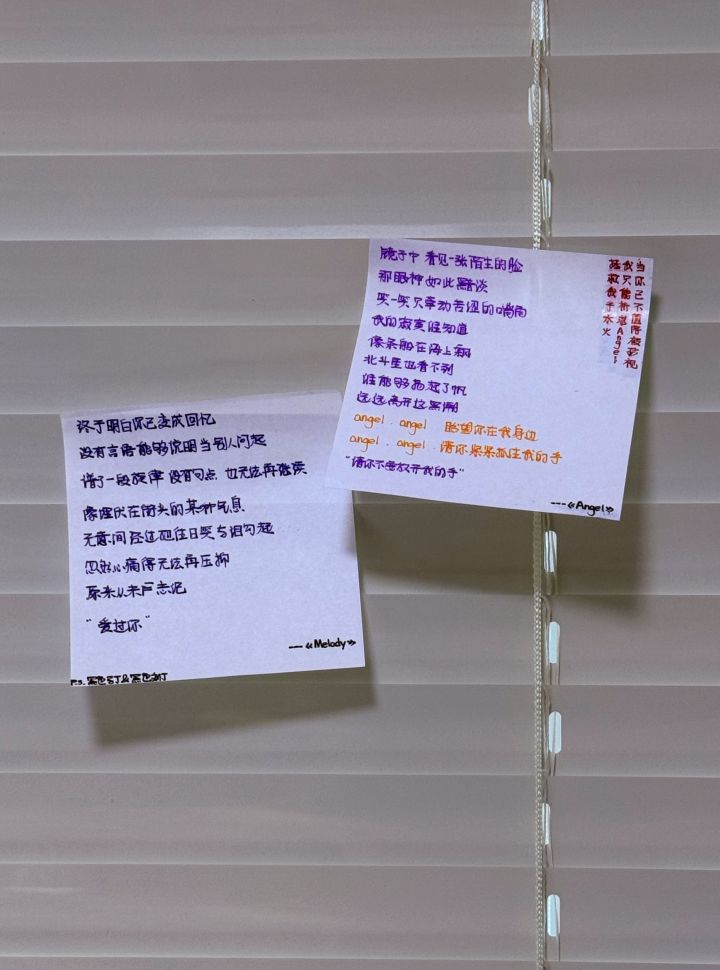 终于明白你已变成回忆
没有言语能够说明当别人问起
谱了一段旋律 没有句点 也无法再继续
像埋伏在街头的某种气息
无意间经过把往日笑与泪勾起
忽然心痛得无法再压抑
原来从未忘记
"爱过你"
---《Melody》
P.S.
镜子中 看见一张陌生的脸
那眼神如此黯淡
笑一笑只牵动苦涩的嘴角
我的寂寞谁知道
像条船在海上飘
北斗星也看不到
谁能够扬起了帆
远远离开这黑潮
angel. angel. 盼望你在我身边
angel. angel. 请你紧紧抓住我的手
"请你不要放开我的手"
---《Angel》
当你已不值得被珍视
我只能祈求Angel
拯救我于水火